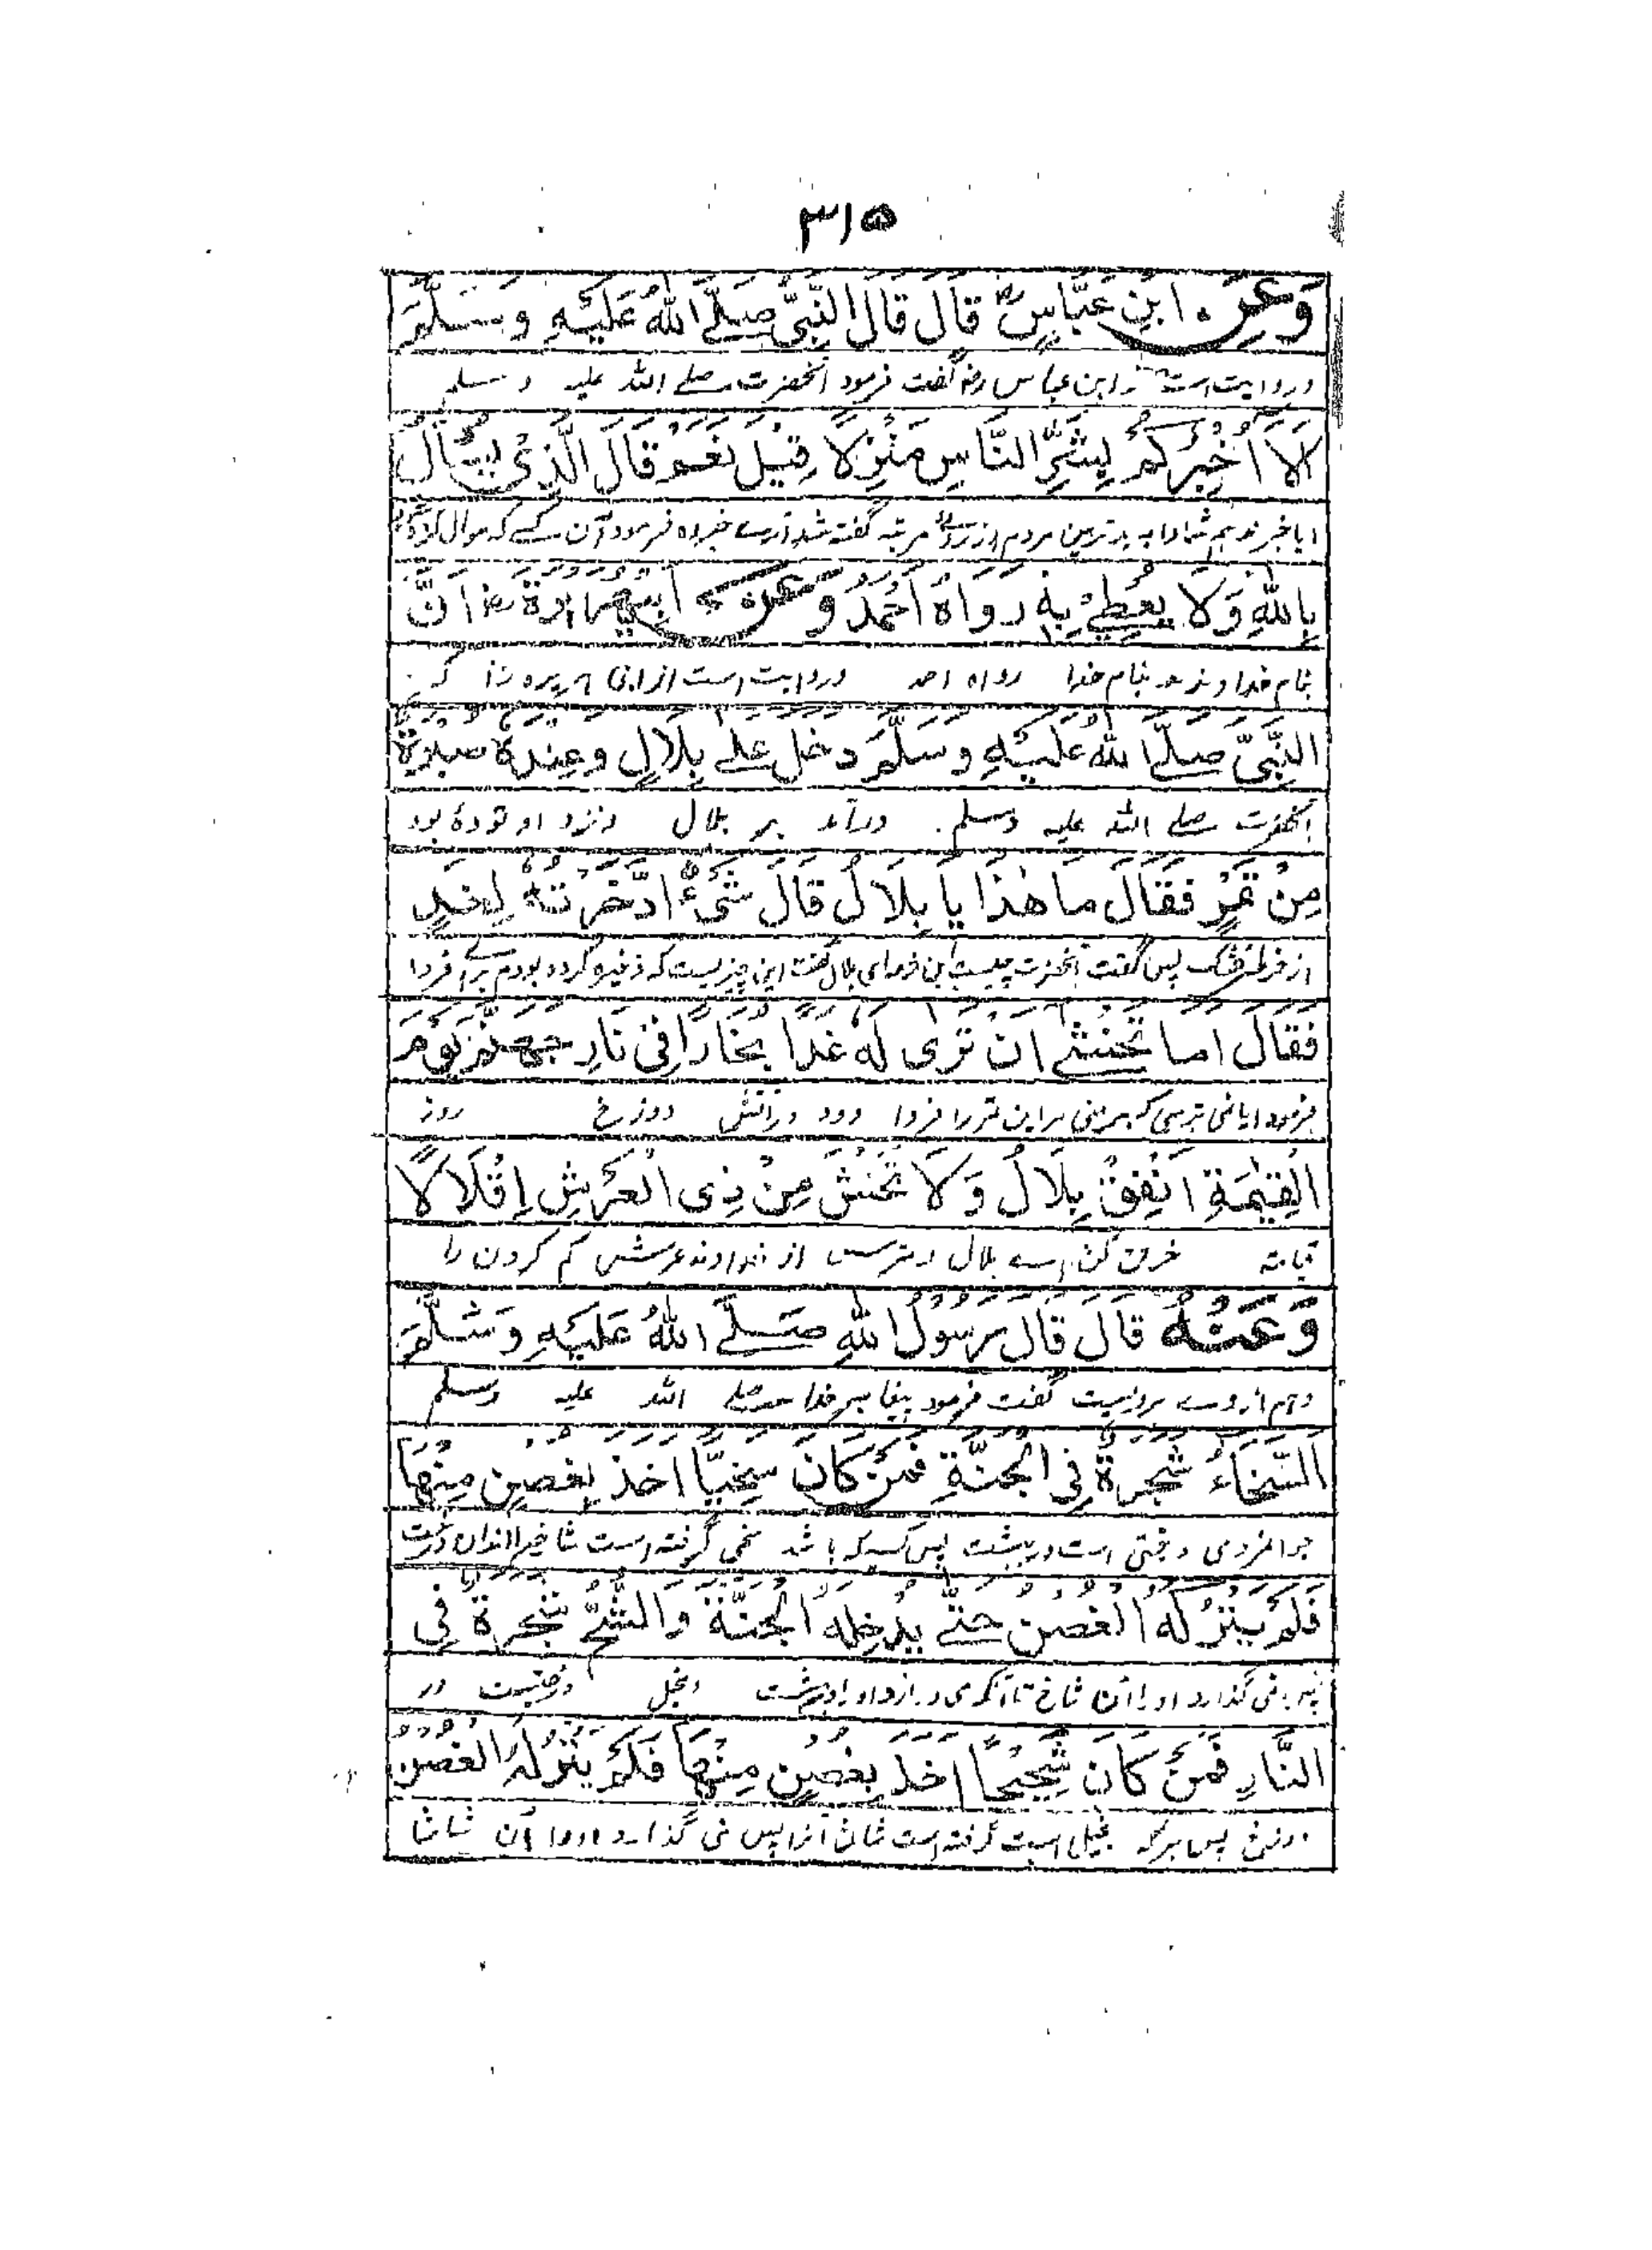 ٣١٥
وَعَنِ ابْنِ عَبَّاسٍ رض قَالَ قَالَ النَّبِيُّ صَلَّے اللّٰهُ عَلَيْهِ وَسَلَّمَ
و روایت است از ابن عباس رض گفت فرمود آنحضرت صلے الله علیه و سلم
اَلَا اُخْبِرُكُمْ بِشَرِّ النَّاسِ مَنْزِلًا قِيْلَ نَعَمْ قَالَ الَّذِيْ يُسْئَالُ
ایا خبر ندهم شما را به بدترین مردم از روے مرتبه گفته شد آرے خبر ده فرمود آن کسے که سوال کرده
بِاللّٰهِ وَلَا يُعْطِيْ بِهٖ رَوَاهُ اَحْمَدُ وَعَنْ اَبِيْ هُرَيْرَةَ رض اَنَّ
بنام خدا و ندهد بنام خدا رواه احمد و روایت است از ابی هریره رض که
النَّبِيَّ صَلَّے اللّٰهُ عَلَيْهِ وَسَلَّمَ دَخَلَ عَلٰے بِلَالٍ وَعِنْدَهٗ صُبْرَةٌ
آنحضرت صلے الله علیه وسلم درآمد بر بلال و نزد او تودۀ بود
مِنْ تَمْرٍ فَقَالَ مَا هٰذَا يَا بِلَالُ قَالَ شَيْءٌ ادَّخَرْتُهٗ لِغَدٍ
از خرماے خشک پس گفت آنحضرت چیست این خرما ای بلال گفت این چیزیست که ذخیره کرده بودم براے فردا
فَقَالَ اَمَا تَخْشٰے اَنْ تَرٰى لَهٗ غَدًا بُخَارًا فِيْ نَارِ جَهَنَّمَ يَوْمَ
فرمود ایا نمی ترسی که ببینی مر این تمر را فردا دود در آتش دوزخ روز
الْقِيٰمَةِ اَنْفِقْ بِلَالُ وَلَا تَخْشَ مِنْ ذِى الْعَرْشِ اِقْلَالًا
قیامة خرچ کن اے بلال و مترس از خداوند عرش کم کردن را
وَعَنْهُ قَالَ قَالَ رَسُوْلُ اللّٰهِ صَلَّے اللّٰهُ عَلَيْهِ وَسَلَّمَ
و هم از وے مرویست گفت فرمود پیغامبر خدا صلے الله علیه وسلم
السَّخَاءُ شَجَرَةٌ فِي الْجَنَّةِ فَمَنْ كَانَ سَخِيًّا اَخَذَ بِغُصْنٍ مِنْهَا
جوانمردی درختی است در بهشت پس کسیکه باشد سخی گرفته است شاخے را ازان درخت
فَلَمْ يَتْرُكْهُ الْغُصْنُ حَتّٰے يُدْخِلَهُ الْجَنَّةَ وَالشُّحُّ شَجَرَةٌ فِي
پس نمی گذارد او را آن شاخ تا آنکه می درآرد او را در بهشت و بخل درختیست در
النَّارِ فَمَنْ كَانَ شَحِيْحًا اَخَذَ بِغُصْنٍ مِنْهَا فَلَمْ يَتْرُكْهُ الْغُصْنُ
پس هرکه بخیل است گرفته است شاخ آنرا پس نمی گذارد او را آن شاخ